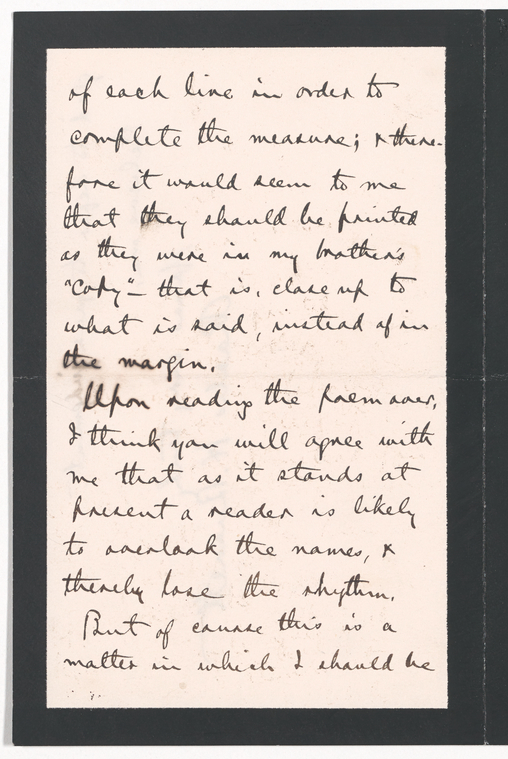 of each line in order to
complete the measure; & there-
fore it would seem to me
that they should be printed
as they were in my brother's
"copy" — that is, close up to
what is said, instead of in
the margin.
Upon reading the poem over,
I think you will agree with
me that as it stands at
present a reader is likely
to overlook the names, &
thereby lose the rhythm.
But of course this is a
matter in which I should be